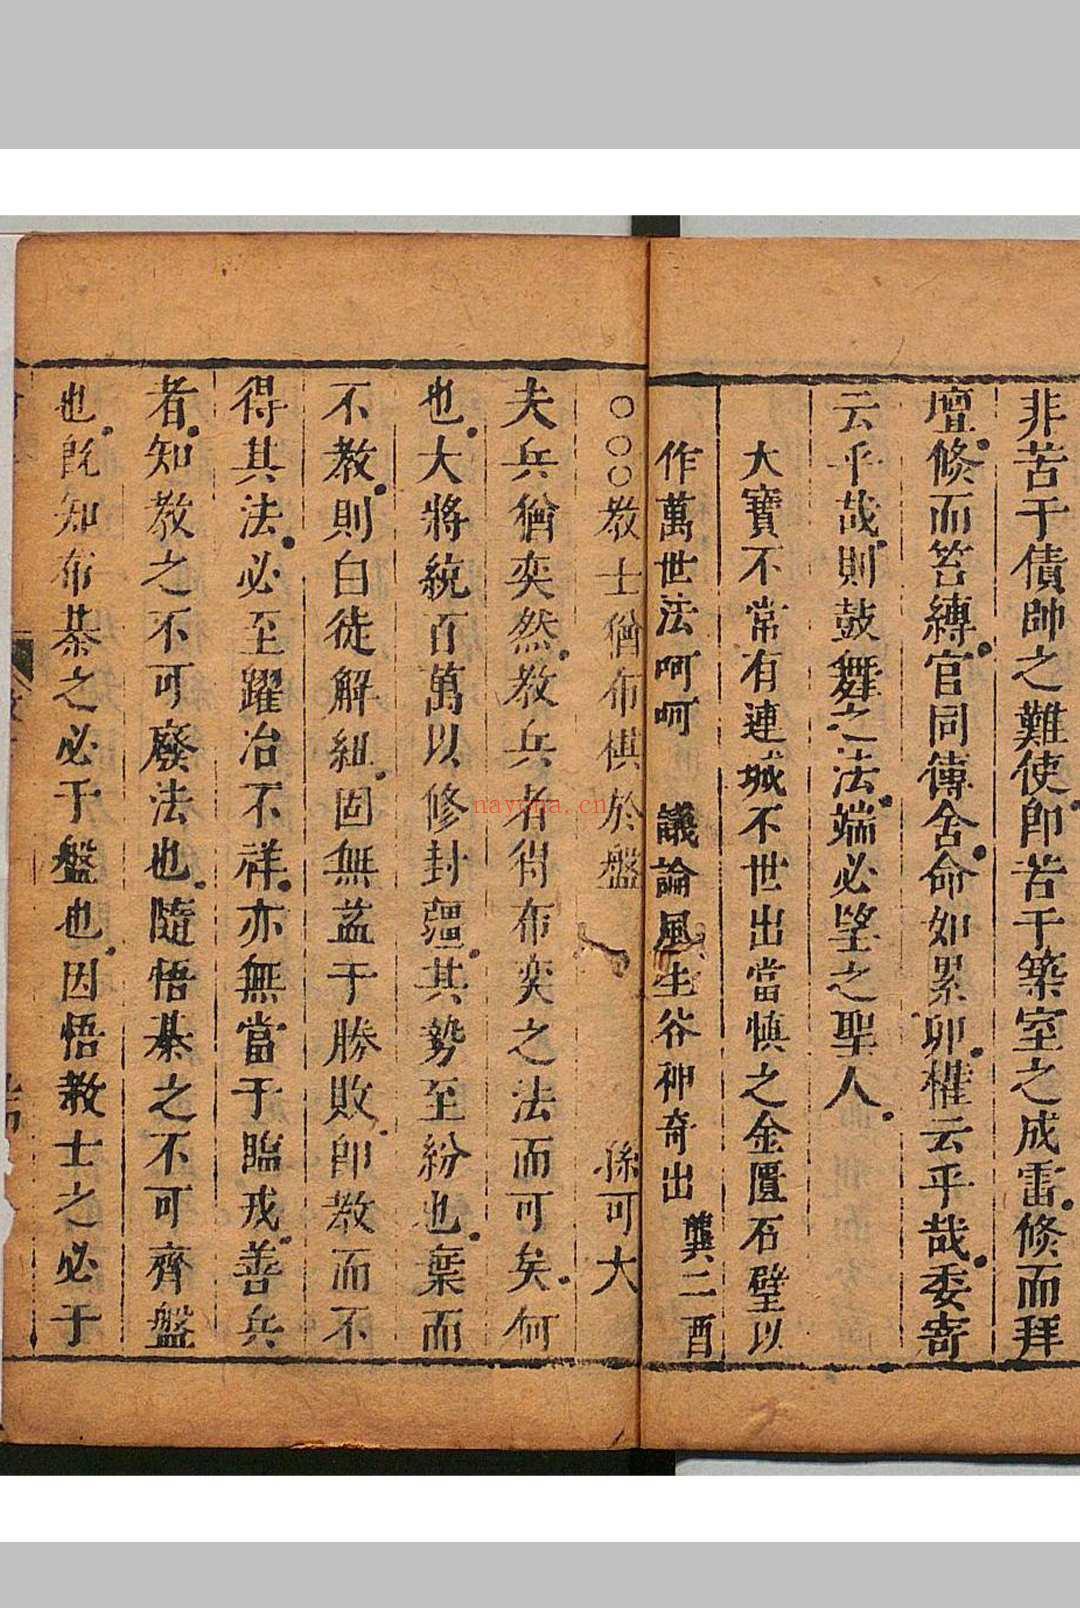 非苦于債帥之難使即苦于築室之成雷修而拜
壇修而笞縳官同傳舍命如累卵權云乎哉委寄
云乎哉則鼓舞之法端必望之聖人
大寶不常有連城不世出當慎之金匱石璧以
作萬世法呵呵 議論風生谷神奇出 龔二酉
○○○教士猶布棋於盤 孫可大
夫兵猶奕然教兵者得布奕之法而可矣何
也大將統百萬以修封疆其勢至紛也葉而
不教則白徒解紐固無益于勝敗即教而不
得其法必至躍冶不祥亦無當于臨戎善兵
者知教之不可廢法也隨悟棊之不可齊盤
也既知布棊之必于盤也因悟教士之必于
nayona.cn